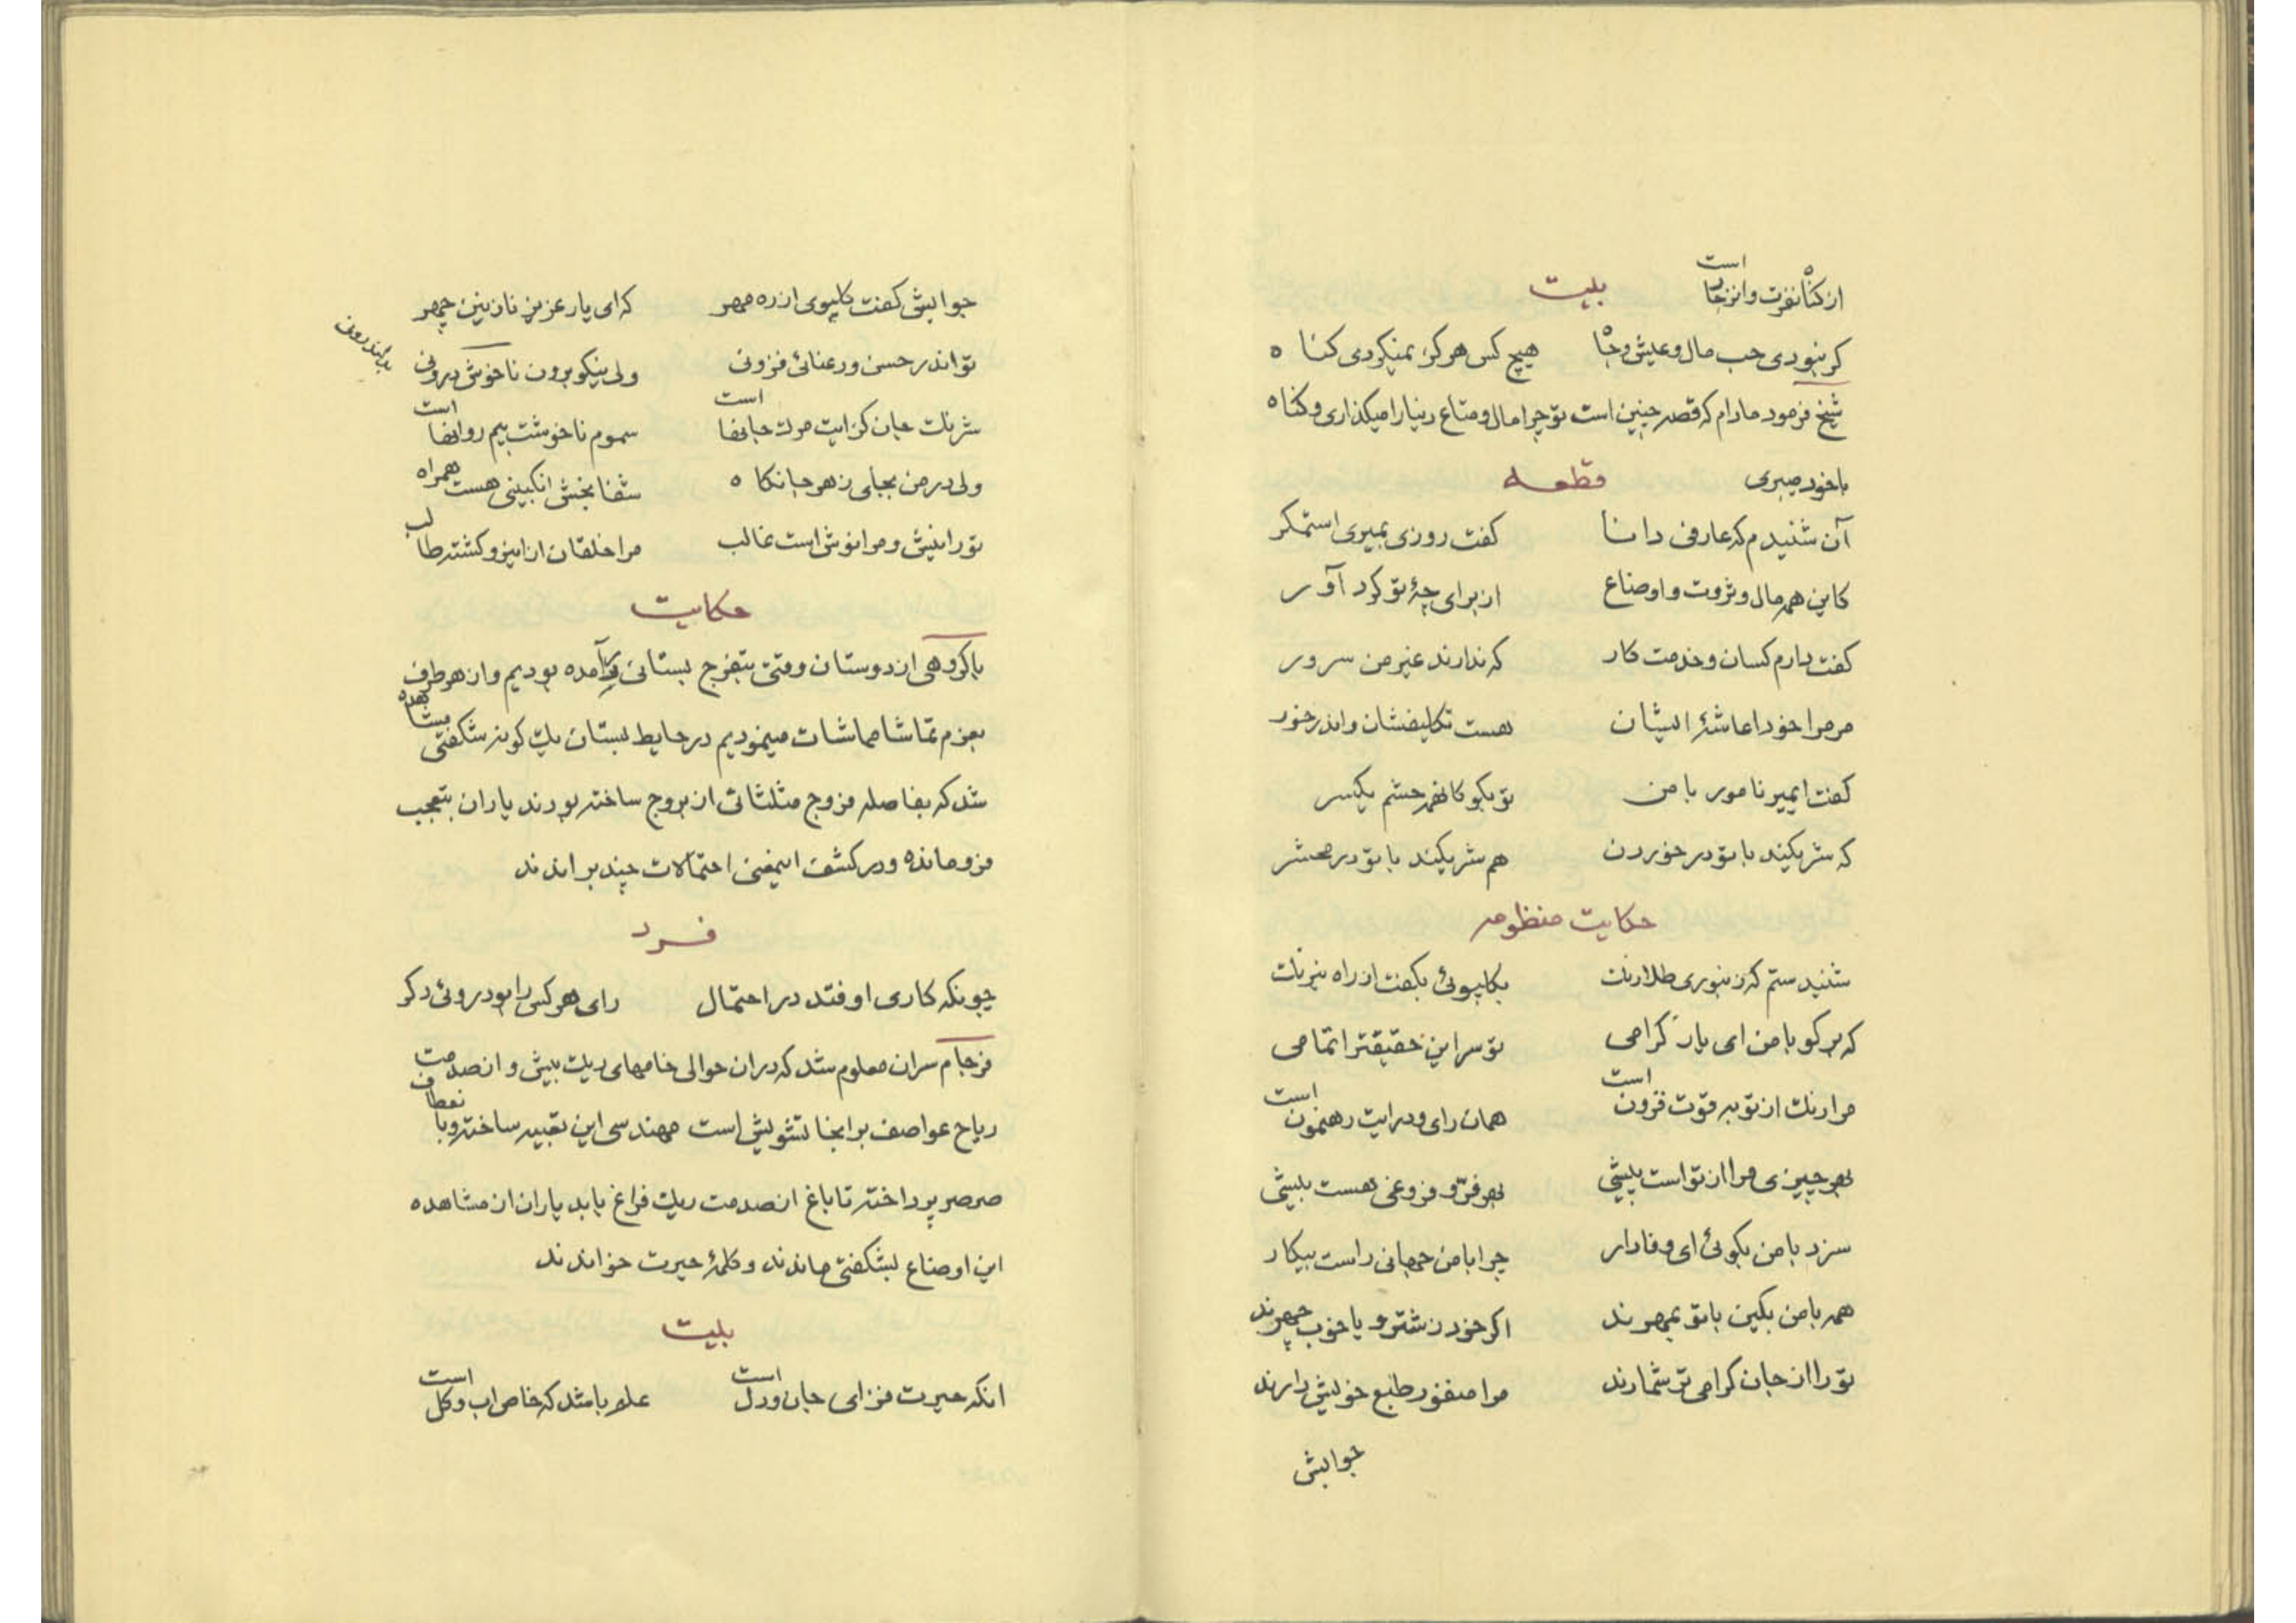 از گناه نفرت و انزجار است
بیت
کر نبودی حب مال و عیش و جاه هیچ کس هرکز نمیکردی کناه
شیخ فرمود مادام که قصه چنین است تو چرا مال و متاع دنیا را میکذاری و کناه
باخود میبری
قطعه
آن شنیدم که عارفی دانا کفت روزی بمیری استمکر
کاین همه مال و ثروت و اوضاع از برای چهٔ تو کرد آور
کفت دارم کسان و خدمت کار که ندارند غیر من سرور
مر مرا خود اعاشهٔ ایشان هست تکلیفشان و اندر خور
کفت ایمیر نامور با من تو بکو کانهمه حشم یکسر
که شریکند با تو در خوردن هم شریکند با تو در محشر
حکایت منظومه
شنیدستم که زنبوری طلارنک بکلپوئی بکفت از راه نیرنک
که برکو با من ای یار کرامی تو سر این حقیقترا تمامی
مرا رنک از تو به قوت فزون است همان رای و درایت رهنمون است
بهر چیزی مرا از تو است پیشی بهر فرّ و فروغی هست بیشی
سزد با من بکوئی ای وفادار چرا با من جهانی راست پیکار
همه با من بکین با تو بمهرند اکر خود زشترو یا خوب چهرند
تو را از جان کرامی تر شمارند مرا منفور طبع خویش دارند
جوابش
جوابش کفت کلپوی از ره مهر که ای یار عزیز نازنین چهر
تو اندر حسن و رعنائی فزونی ولی نیکو برون ناخوش درونی
شرنک جان کزایت مرک جانها است سموم ناخوشت بیم روانها است
ولی در من بجای زهر جانکاه شفا بخش انکبینی هست همراه
تو را نیش و مرا نوش است غالب مرا خلقان از اینرو کشته طالب
حکایت
با کروهی از دوستان وقتی بتفرج بستانی فرآمده بودیم و از هر طرف
بعزم تماشا مماشات مینمودیم در حایط بستان یک کونه شکفتی مشاهده
شد که بفاصله فروج مثلثاتی از بروج ساخته بودند یاران بتعجب
فروماندہ و در کشف اینمعنی احتمالات چند براندند
فرد
چونکه کاری اوفتد در احتمال رای هر کس را بود روئی دکر
فرجام سر ان معلوم شد که در ان حوالی خامهای ریک بیش و از صدمت
ریاح عواصف بر انجا تشویش است مهندسی این تعبیه ساخته و با نعطاف
صرصر پرداخته تا باغ از صدمت ریک فراغ یابد یاران از مشاهده
این اوضاع بشکفتی ماندند و کلمهٔ حیرت خواندند
بیت
انکه حیرت فزای جان و دل است علم باشد که خاص اب و کل است